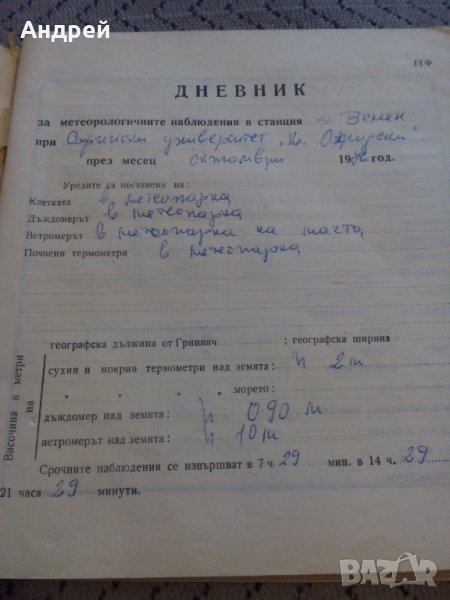 Андрей
ГГФ
ДНЕВНИК
за метеорологичните наблюдения в станция гр. Земен
при Софийски университет „Кл. Охридски"
през месец октомври 1986 год.
Уредите са поставени на:
Клетката в метеопарка
Дъждомерът в метеопарка
Ветромерът в метеопарка на мачта
Почвени термометри в метеопарка
географска дължина от Гринвич ; географска ширина
Височина в метри на
сухия и мокрия термометри над земята: 2 m
„ „ „ „ морето:
дъждомер над земята: 0.90 m
ветромерът над земята: 10 m
Срочните наблюдения се извършват в 7 ч 29 мин. в 14 ч. 29
21 часа 29 минути.
bazar.bg